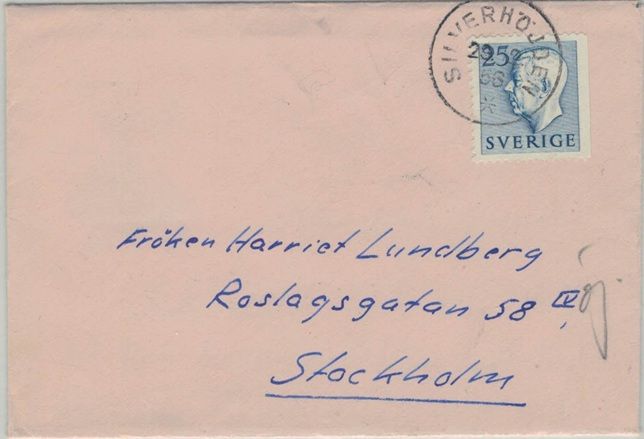 SILVERHÖJDEN
25
SVERIGE
Fröken Harriet Lundberg
Roslagsgatan 58 IV,
Stockholm